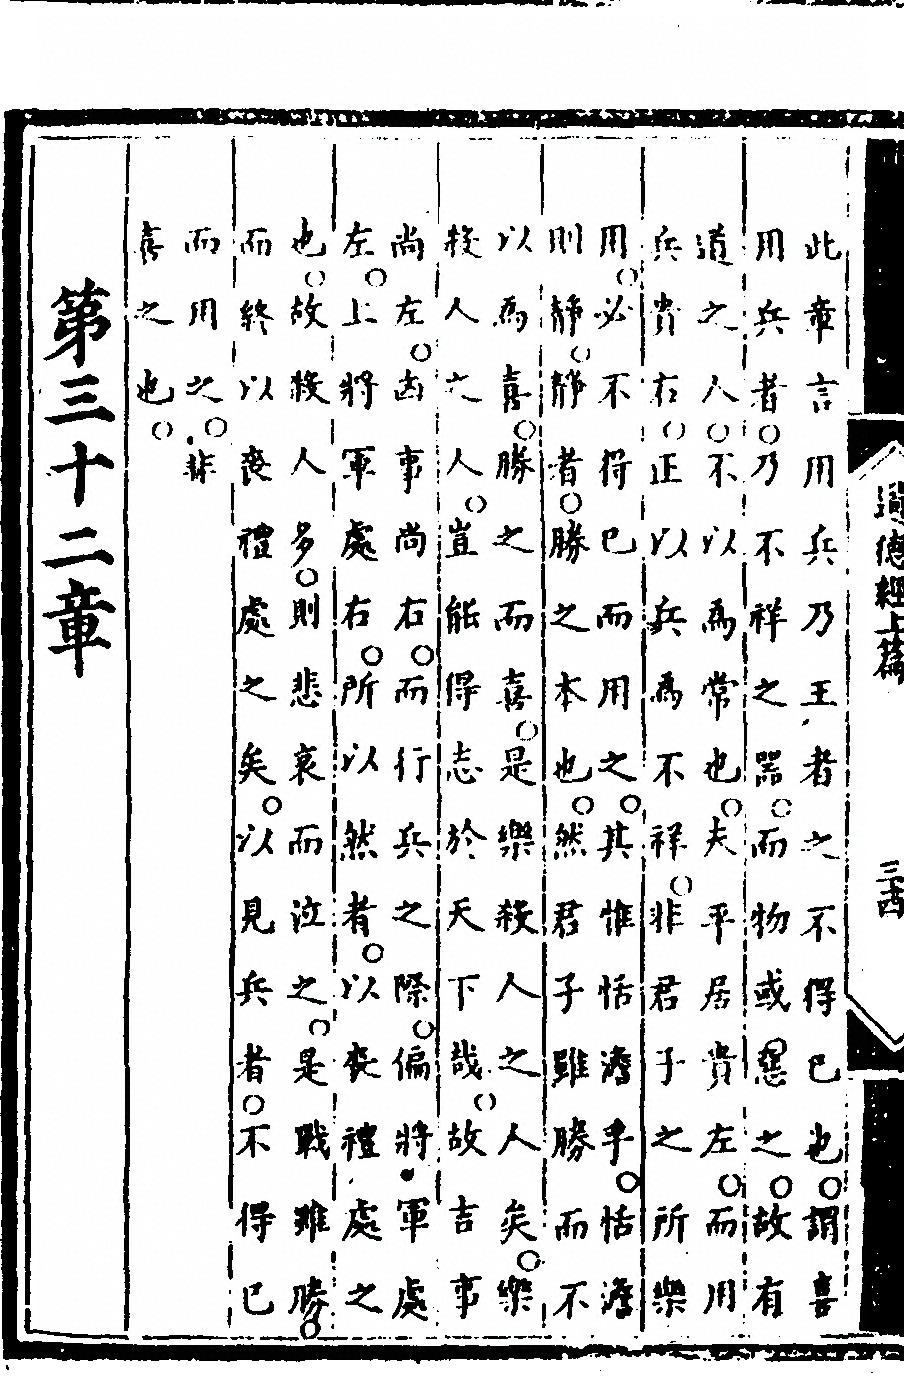 道德經上篇
三四
此章言用兵乃王者之不得已也○謂喜
用兵者○乃不祥之器○而物或惡之○故有
道之人○不以為常也○夫平居貴左○而用
兵貴右○正以兵為不祥○非君子之所樂
用○必不得已而用之○其惟恬澹乎○恬澹
則靜○靜者○勝之本也○然君子雖勝而不
以為喜○勝之而喜○是樂殺人之人矣○樂
殺人之人○豈能得志於天下哉○故吉事
尚左○凶事尚右○而行兵之際○偏將軍處
左○上將軍處右○所以然者○以喪禮處之
也○故殺人多○則悲哀而泣之○是戰雖勝○
而終以喪禮處之矣○以見兵者○不得已
而用之○非
喜之也○
第三十二章